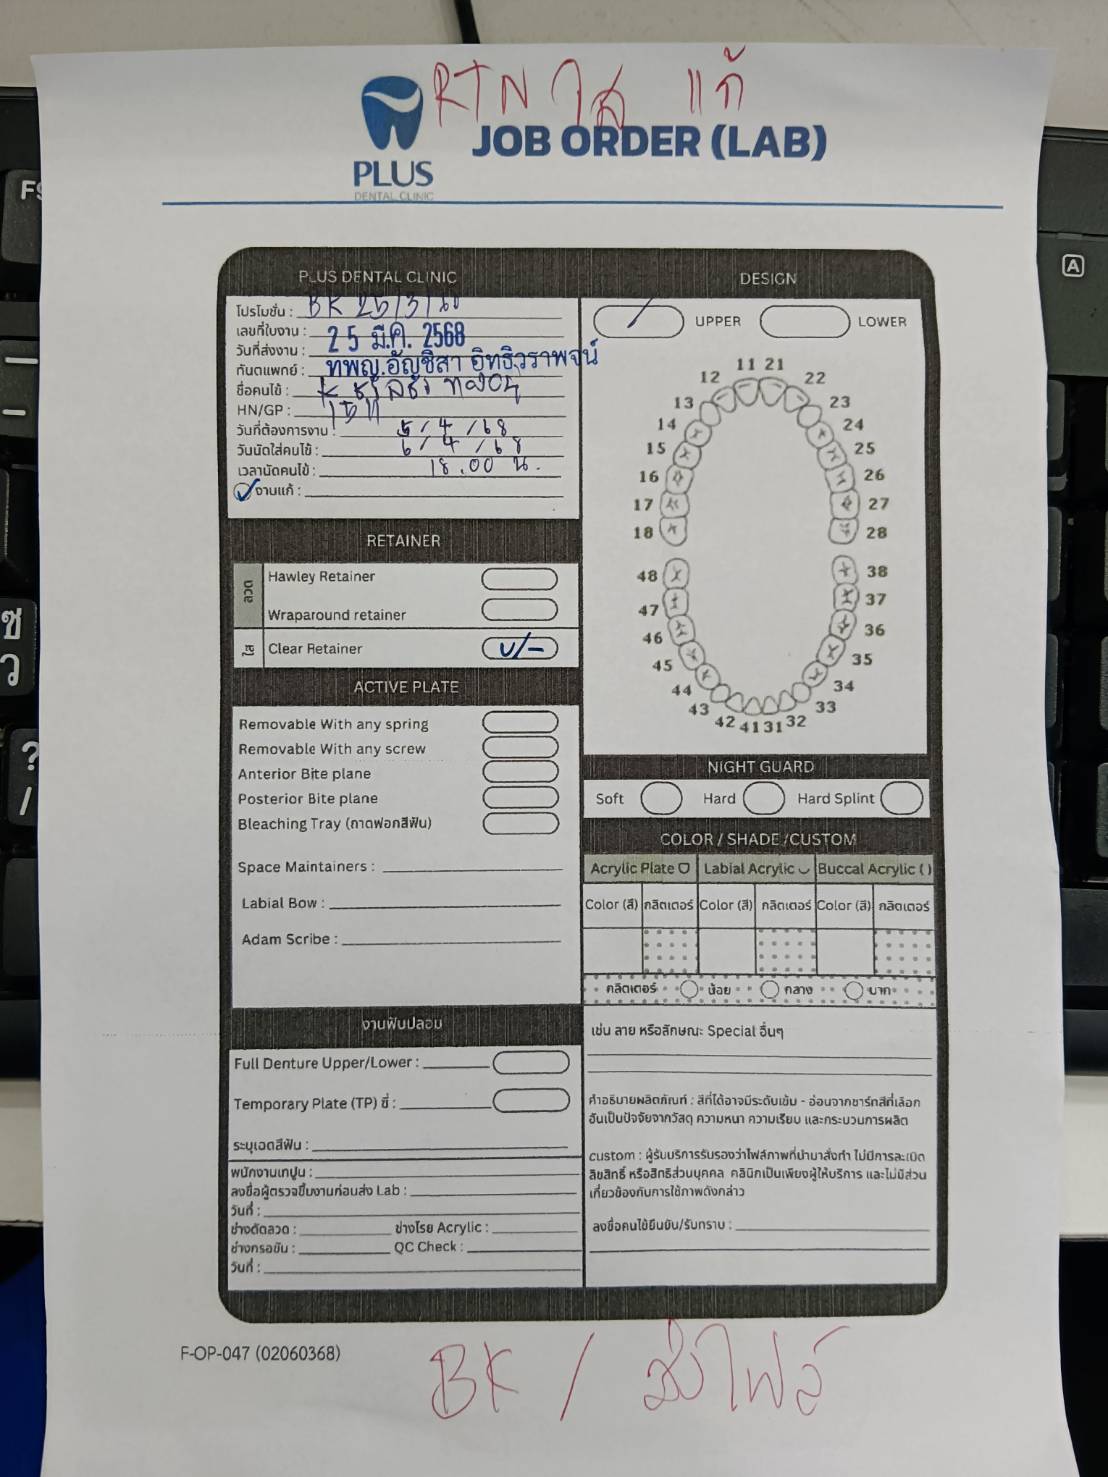 RTN ใส แก้
PLUS
DENTAL CLINIC
JOB ORDER (LAB)
PLUS DENTAL CLINIC
โปรโมชั่น : BK 25/3/68
เลขที่ใบงาน :
วันที่ส่งงาน : 25 มี.ค. 2568
ทันตแพทย์ : ทพญ.อัญชิสา อิทธิวราพจน์
ชื่อคนไข้ :
HN/GP :
วันที่ต้องการงาน : 5/4/68
วันนัดใส่คนไข้ : 6/4/68
เวลานัดคนไข้ : 18.00 น.
งานแก้ :
RETAINER
ลวด
Hawley Retainer
Wraparound retainer
ใส
Clear Retainer U/-
ACTIVE PLATE
Removable With any spring
Removable With any screw
Anterior Bite plane
Posterior Bite plane
Bleaching Tray (ถาดฟอกสีฟัน)
Space Maintainers :
Labial Bow :
Adam Scribe :
งานฟันปลอม
Full Denture Upper/Lower :
Temporary Plate (TP) ซี่ :
ระบุเฉดสีฟัน :
พนักงานเทปูน :
ลงชื่อผู้ตรวจชิ้นงานก่อนส่ง Lab :
วันที่ :
ช่างดัดลวด : ช่างโรย Acrylic :
ช่างกรอขัน : QC Check :
วันที่ :
DESIGN
UPPER LOWER
11 21
12 22
13 23
14 24
15 25
16 26
17 27
18 28
48 38
47 37
46 36
45 35
44 34
43 33
42 41 31 32
NIGHT GUARD
Soft Hard Hard Splint
COLOR / SHADE /CUSTOM
Acrylic Plate Labial Acrylic Buccal Acrylic ( )
Color (สี) กลิตเตอร์ Color (สี) กลิตเตอร์ Color (สี) กลิตเตอร์
กลิตเตอร์ น้อย กลาง มาก
เช่น ลาย หรือลักษณะ Special อื่นๆ
คำอธิบายผลิตภัณฑ์ : สีที่ได้อาจมีระดับเข้ม - อ่อนจากชาร์ทสีที่เลือก
อันเป็นปัจจัยจากวัสดุ ความหนา ความเรียบ และกระบวนการผลิต
custom : ผู้รับบริการรับรองว่าไฟล์ภาพที่นำมาสั่งทำ ไม่มีการละเมิด
ลิขสิทธิ์ หรือสิทธิส่วนบุคคล คลินิกเป็นเพียงผู้ให้บริการ และไม่มีส่วน
เกี่ยวข้องกับการใช้ภาพดังกล่าว
ลงชื่อคนไข้ยืนยัน/รับทราบ :
F-OP-047 (02060368)
BK / ส่งไฟล์
F9
A
ซ
ว
?
/